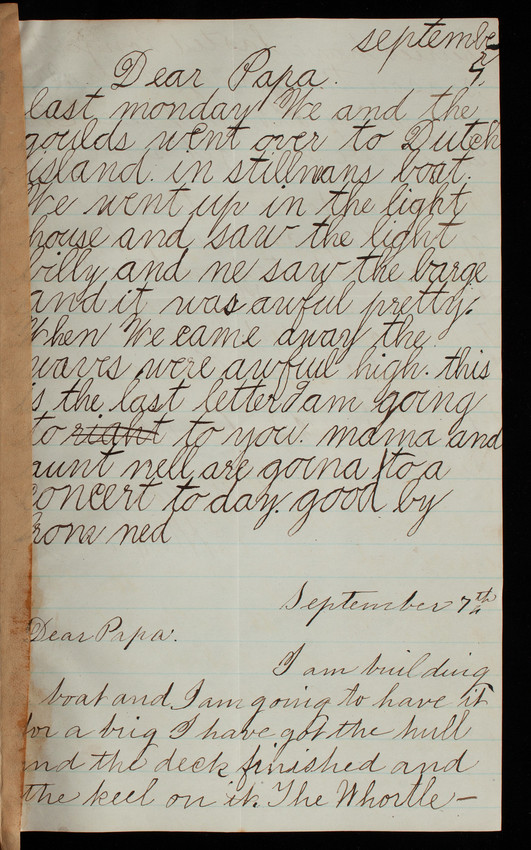 september
7,
Dear Papa.
last monday We and the
goulds went over to Dutch
island. in stillmans boat.
We went up in the light
house and saw the light
billy and ne saw the barge
and it was awful pretty.
When We came away the
waves were awful high. this
is the last letter I am going
to right to you. mama and
aunt nell are going to a
concert to day. good by
from ned
September 7th
Dear Papa.
I am building
boat and I am going to have it
for a brig I have got the hull
and the deck finished and
the keel on it. The Whortle-